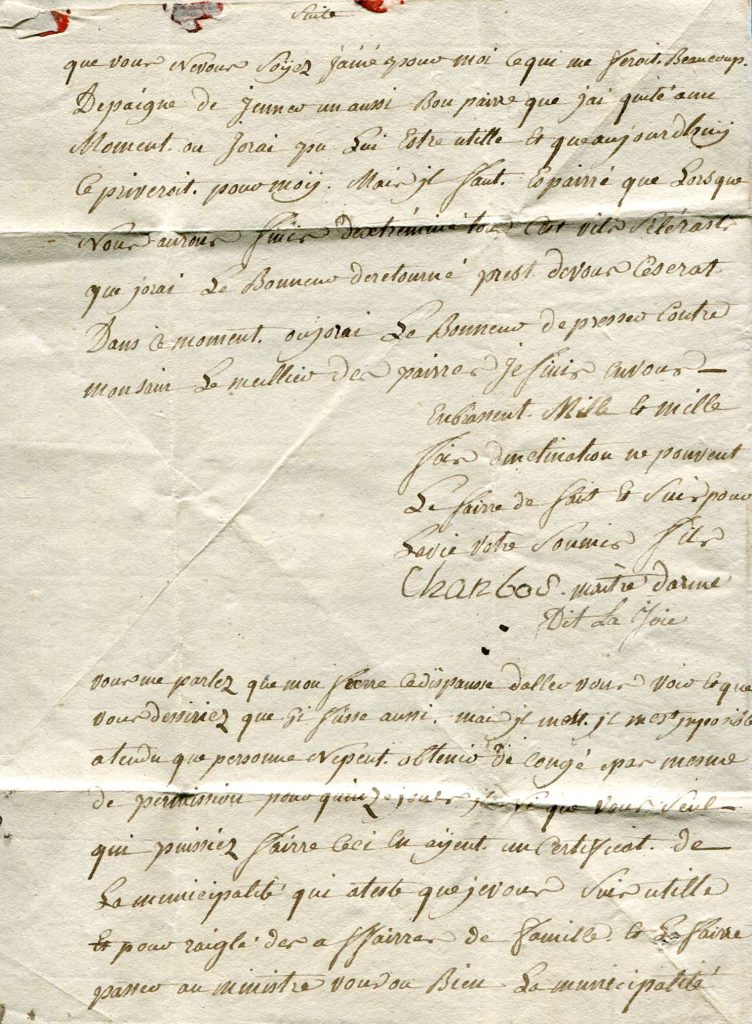 Suite
que vous ne vous soÿez jainé pour moi ce qui me feroit Beaucoup.
Depaigne de jenner un aussi Bon pairre que j'ai quité aux
Moment. ou Jorai pu Lui Estre utille Et que aujourdhuij
Ce priveroit. pour moij. Mais jl faut. Espairré que Lorsque
Nous aurons finis dextréminé tous Cest vils Sélérasts
que jorai Le Bonneur deretourné prest devous Ceserat
Dans ce moment. oujorai Le Bonneur de presser Contre
mon sain Le meillieur des pairres Je finis envous
Enbrassent. Mille Et mille
fois dinclination ne pouvent
Le fairre de fait Et suis pour
Lavie votre Soumis fils
Charbos. maitre darme
Dit La Joie
vous me parlez que mon frerre cedispausse daller vous voir Et que
vous dessiriez que Gi fusse aussi. mais jl mest. jl mest jmposible
atendu que personne Nepeut. obtenir de congé pas mesme
de permission pour quinze jours jl ni que vous seul
qui puissiez fairre Ceci En aÿent. un Certificat. de
La municipalité qui ateste que jevous suis utille
Et pour raiglé des affairres de famille. Et La fairre
passer au ministre vous ou Bien La municipalité